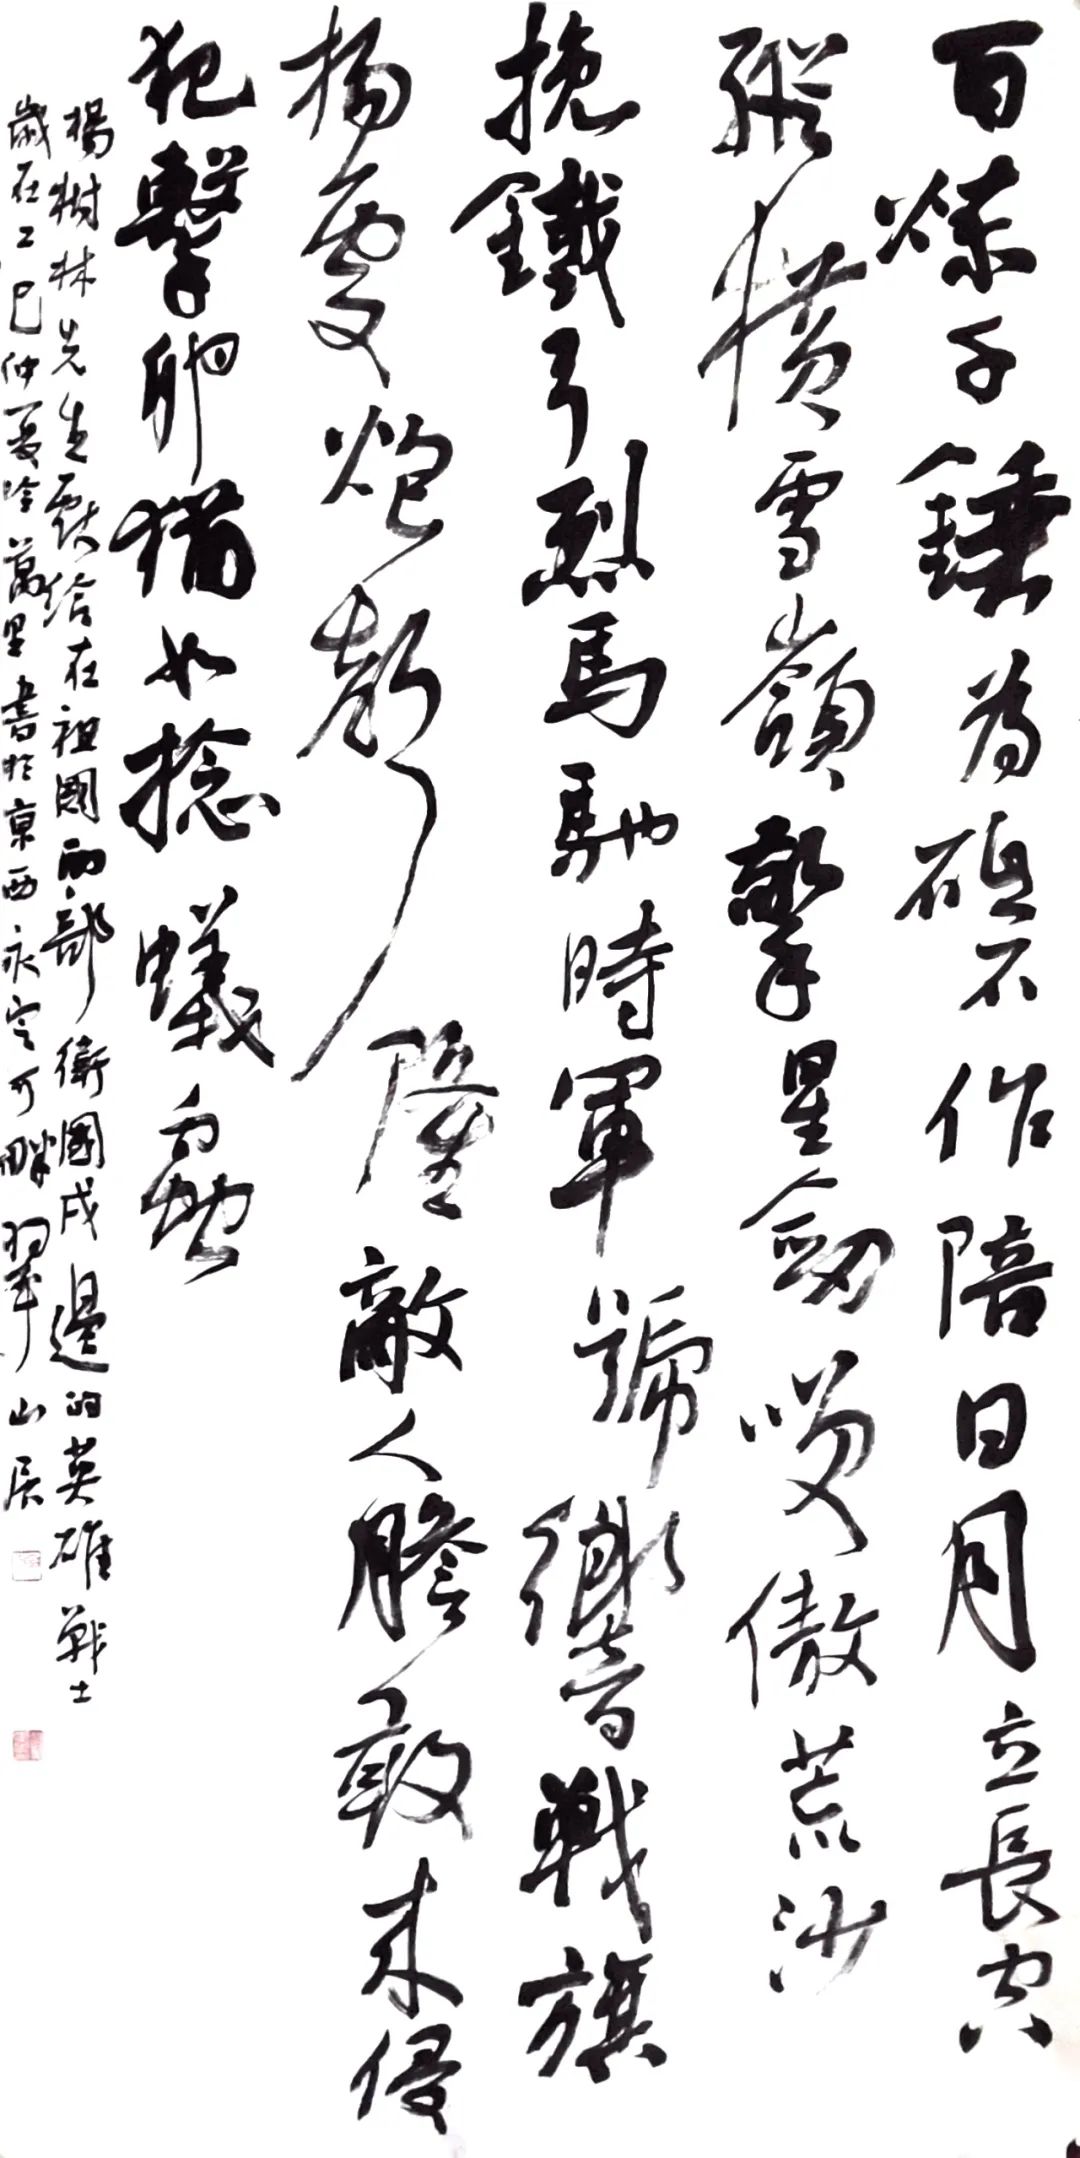 百煉千錘為礎石作陪日月立長空
縱橫雪嶺擎星劍嘆傲荒沙
挽鐵弓烈馬馳時軍號響戰旗
揚處炮聲隆敵人膽敢來侵
犯擊卵猶如捻蟻蟲
楊樹林先生獻給在祖國西部衛國戍邊的英雄戰士
歲在乙巳仲夏吟萬里書於京西永定河畔翠山居